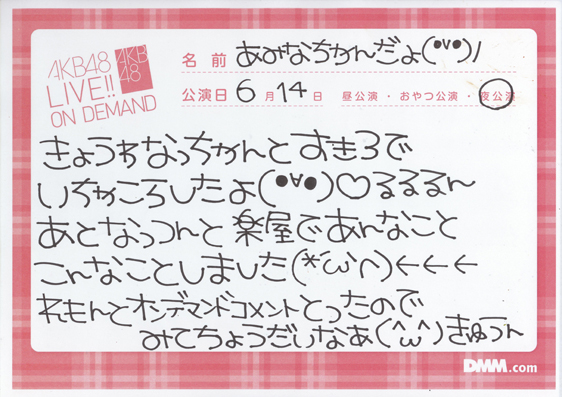 AKB48
LIVE!!
ON DEMAND
AKB
48
名前 あみなちゃんだよ(°v°)ノ
公演日 6月14日 昼公演・おやつ公演・夜公演
きょうわなっちゃんとすきろで
いちゃころしたよ(°∀°)♡るるるん
あとなっつんと楽屋であんなこと
こんなことしました(*´ω`^)←←←
れもんとオンデマンドコメントとったので
みてちょうだいなあ(^ω^)きゅうん
DMM.com